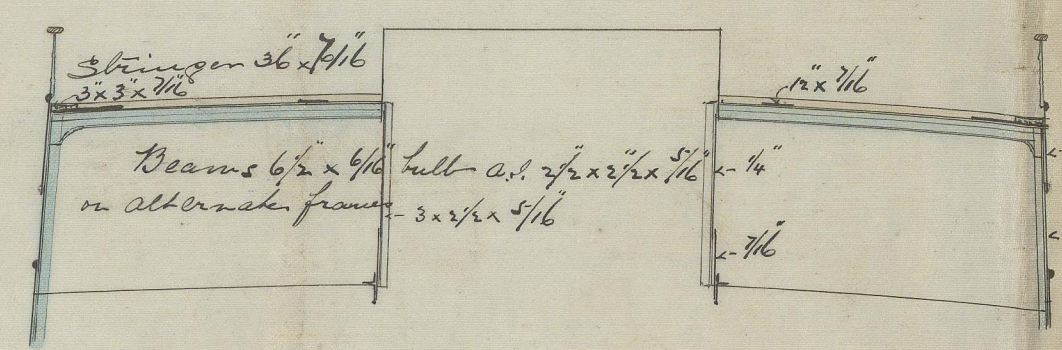 Stringer 36" x 7/16"
3" x 3" x 7/16"
12" x 7/16"
Beams 6 1/2" x 6/16" bulb a.I. 2 1/2" x 2 1/2" x 5/16"
← 1/4"
on alternate frames
← 3 x 2 1/2 x 5/16"
← 7/16"